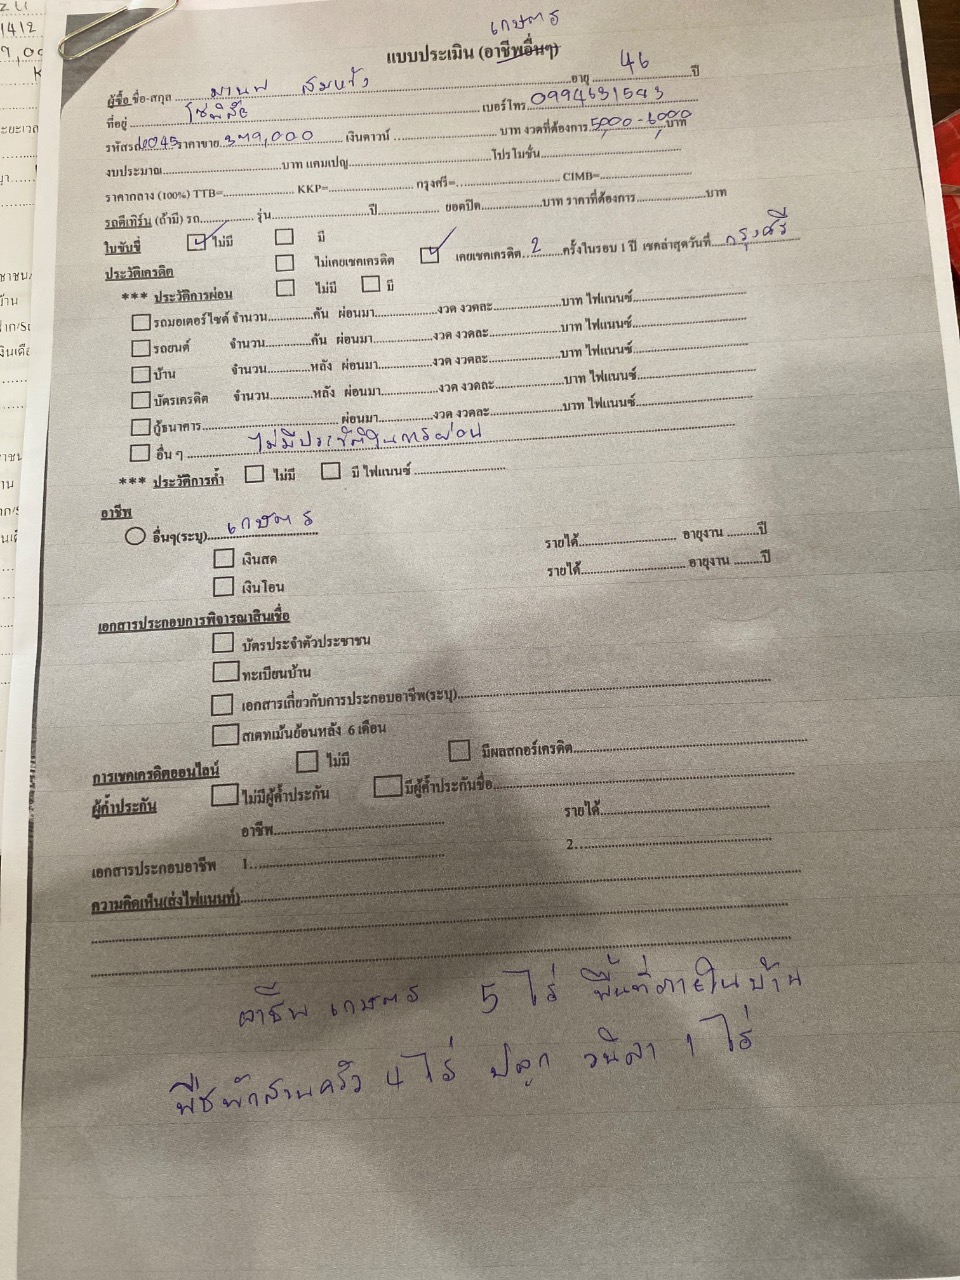 เกษตร
แบบประเมิน (อาชีพอื่นๆ)
ผู้ซื้อ ชื่อ-สกุล มานพ สมหวัง อายุ 46 ปี
ที่อยู่ โซ่พิสัย เบอร์โทร 0994631543
รหัสรถ 0045 ราคาขาย 379,000 เงินดาวน์ บาท งวดที่ต้องการ 5,000 - 6,000 บาท
งบประมาณ บาท แคมเปญ โปรโมชั่น
ราคากลาง (100%) TTB= KKP= กรุงศรี= CIMB=
รถตีเทิร์น (ถ้ามี) รถ รุ่น ปี ยอดปิด บาท ราคาที่ต้องการ บาท
ใบขับขี่ ไม่มี มี
ประวัติเครดิต ไม่เคยเชคเครดิต เคยเชคเครดิต 2 ครั้งในรอบ 1 ปี เชคล่าสุดวันที่ กรุงศรี
*** ประวัติการผ่อน ไม่มี มี
รถมอเตอร์ไซค์ จำนวน คัน ผ่อนมา งวด งวดละ บาท ไฟแนนซ์
รถยนต์ จำนวน คัน ผ่อนมา งวด งวดละ บาท ไฟแนนซ์
บ้าน จำนวน หลัง ผ่อนมา งวด งวดละ บาท ไฟแนนซ์
บัตรเครดิต จำนวน หลัง ผ่อนมา งวด งวดละ บาท ไฟแนนซ์
กู้ธนาคาร ผ่อนมา งวด งวดละ บาท ไฟแนนซ์
อื่น ๆ ไม่มีประวัติในการผ่อน
*** ประวัติการค้ำ ไม่มี มี ไฟแนนซ์
อาชีพ
อื่นๆ(ระบุ) เกษตร
เงินสด รายได้ อายุงาน ปี
เงินโอน รายได้ อายุงาน ปี
เอกสารประกอบการพิจารณาสินเชื่อ
บัตรประจำตัวประชาชน
ทะเบียนบ้าน
เอกสารเกี่ยวกับการประกอบอาชีพ(ระบุ)
สเตทเม้นย้อนหลัง 6 เดือน
การเชคเครดิตออนไลน์ ไม่มี มีผลสกอร์เครดิต
ผู้ค้ำประกัน ไม่มีผู้ค้ำประกัน มีผู้ค้ำประกันชื่อ
อาชีพ รายได้
เอกสารประกอบอาชีพ 1. 2.
ความคิดเห็น(ส่งไฟแนนท์)
อาชีพ เกษตร 5 ไร่ พื้นที่ภายในบ้าน
พืชผักสวนครัว 4 ไร่ ปลูก วนิลา 1 ไร่